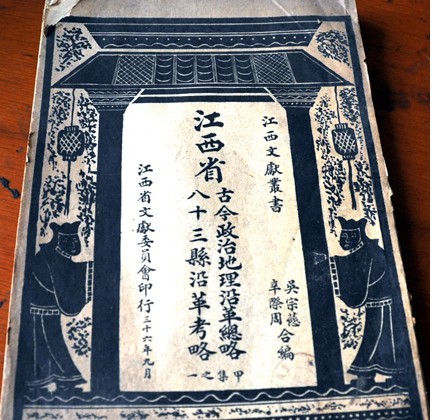 江西文獻叢書
吳宗慈
辛際周
合編
江西省
古今政治地理沿革總略
八十三縣沿革考略
甲集之一
江西省文獻委員會印行
三十六年九月